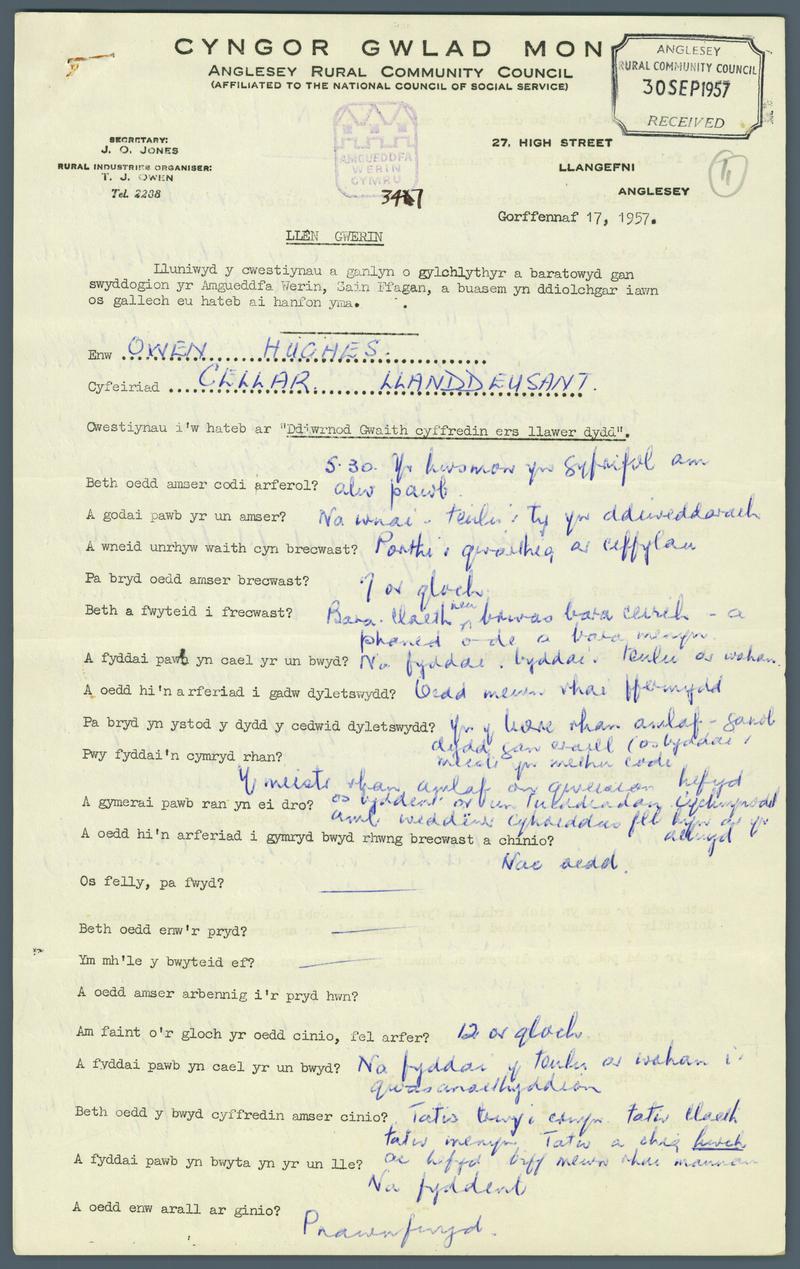 CYNGOR GWLAD MON
ANGLESEY RURAL COMMUNITY COUNCIL
(AFFILIATED TO THE NATIONAL COUNCIL OF SOCIAL SERVICE)
ANGLESEY
RURAL COMMUNITY COUNCIL
30 SEP 1957
RECEIVED
SECRETARY:
J. O. JONES
RURAL INDUSTRIES ORGANISER:
T. J. OWEN
Tel. 2238
AMGUEDDFA
WERIN
CYMRU
27, HIGH STREET
LLANGEFNI
ANGLESEY
Gorffennaf 17, 1957.
LLÊN GWERIN
Lluniwyd y cwestiynau a ganlyn o gylchlythyr a baratowyd gan
swyddogion yr Amgueddfa Werin, Sain Ffagan, a buasem yn ddiolchgar iawn
os gallech eu hateb ai hanfon yma.
Enw OWEN HUGHES.
Cyfeiriad CELLAR. LLANDDEUSANT.
Cwestiynau i'w hateb ar "Ddiwrnod Gwaith cyffredin ers llawer dydd".
5.30. Yr hwsmon yn gyfrifol am
Beth oedd amser codi arferol? alw pawb.
A godai pawb yr un amser? Na wnai - teulu'r ty yn ddiweddarach
A wneid unrhyw waith cyn brecwast? Porthi'r gwartheg a'r ceffylau
Pa bryd oedd amser brecwast? 7 o'r gloch
Beth a fwyteid i frecwast? Bara llaeth neu briwas bara ceirch - a
phaned o de a bara menyn.
A fyddai pawb yn cael yr un bwyd? Na fyddai. byddai'r teulu ar wahan.
A oedd hi'n arferiad i gadw dyletswydd? Oedd mewn rhai ffermydd
Pa bryd yn ystod y dydd y cedwid dyletswydd? Yn y bore rhan amlaf - ganol
dydd gan eraill (os byddai'r
Pwy fyddai'n cymryd rhan? meistr yn methu codi
Y meistr rhan amlaf a'r gweision hefyd
A gymerai pawb ran yn ei dro? os byddent o'r un tueddiadau
aml weddiwr cyhoeddus
A oedd hi'n arferiad i gymryd bwyd rhwng brecwast a chinio? aelwyd
Nac oedd.
Os felly, pa fwyd?
Beth oedd enw'r pryd?
Ym mh'le y bwyteid ef?
A oedd amser arbennig i'r pryd hwn?
Am faint o'r gloch yr oedd cinio, fel arfer? 12 o'r gloch.
A fyddai pawb yn cael yr un bwyd? Na fyddai y teulu ar wahan i'r
gwasanaethyddion
Beth oedd y bwyd cyffredin amser cinio? Tatws trwy'i crwyn tatw llaeth
tatw menyn. Tatw a chig hwch
A fyddai pawb yn bwyta yn yr un lle? ac hefyd biff mewn rhai mannau
Na fyddent
A oedd enw arall ar ginio?
Prawnfwyd.